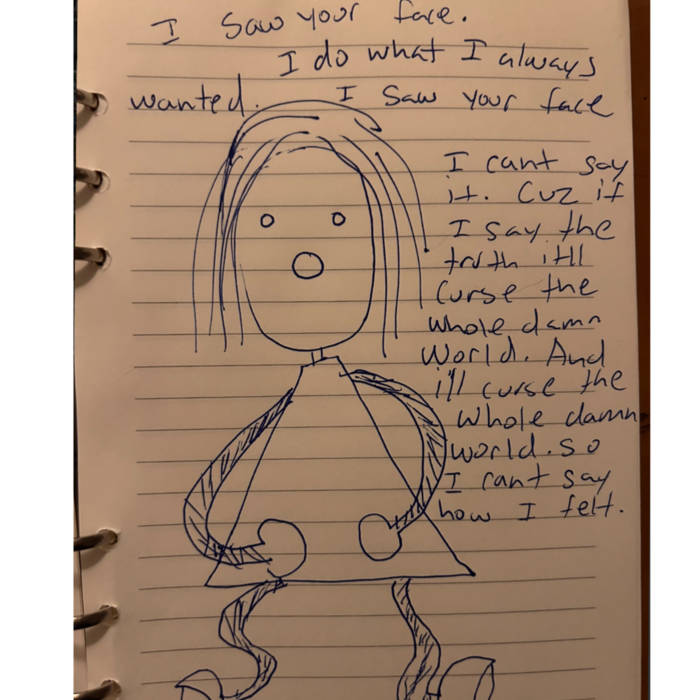 I Saw your face.
I do what I always
wanted. I Saw your face
I cant say
it. Cuz if
I say the
truth itll
Curse the
whole damn
World. And
i'll curse the
whole damn
world. so
I cant say
how I felt.